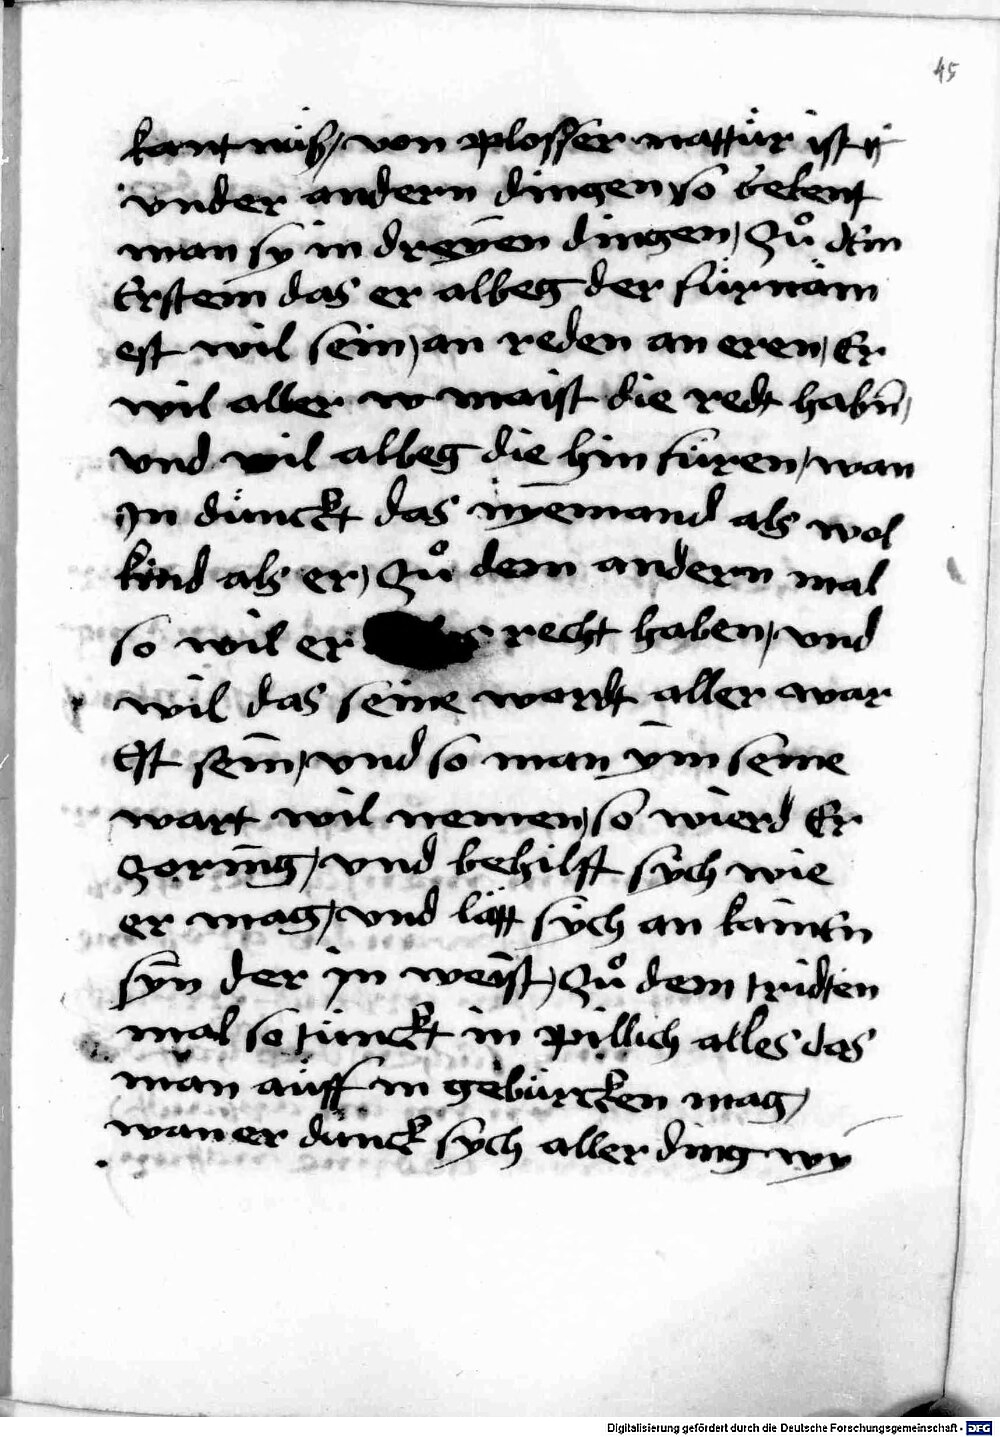 45
kantnüß, von plosser nattür ist ij
vnder andern dingen so bekent
man sy in dreyen dingen, Zů dem
Ersten das er albeg der fürnäm
est wil sein, an reden an eren, Er
wil aller maist die redt habn̄,
vnd wil albeg die hin füren, wan
In dünckt das nyemand als wol
kind als er, Zů dem andern mal
so wil er recht haben, vnd
wil das seine wordt aller war
Est sein, vnd so man ym seine
wart wil nemen, so wierd Er
Zoring, vnd behilft sych wie
er mag, vnd lätt sych an kainen
syn der in weist, Zů dem tridten
mal so tünckt in pillich alles das
man auff in gebürcken mag,
wan er dünck sych aller ding wy
Digitalisierung gefördert durch die Deutsche Forschungsgemeinschaft - DFG